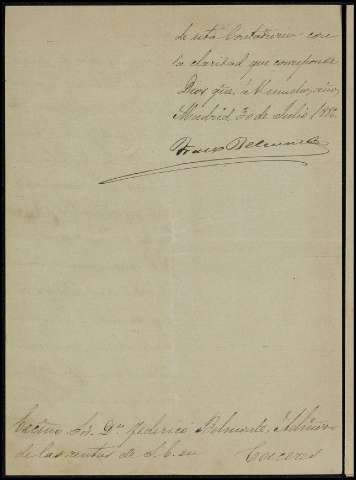 de esta Contaduria con
la claridad que corresponde
Dios gũe. á V. muchos años,
Madrid 30 de Julio 188
Belmonte
Excmo Sr. Dn. Federico Belmonte, Admor
de las rentas de S. E. en Caceres